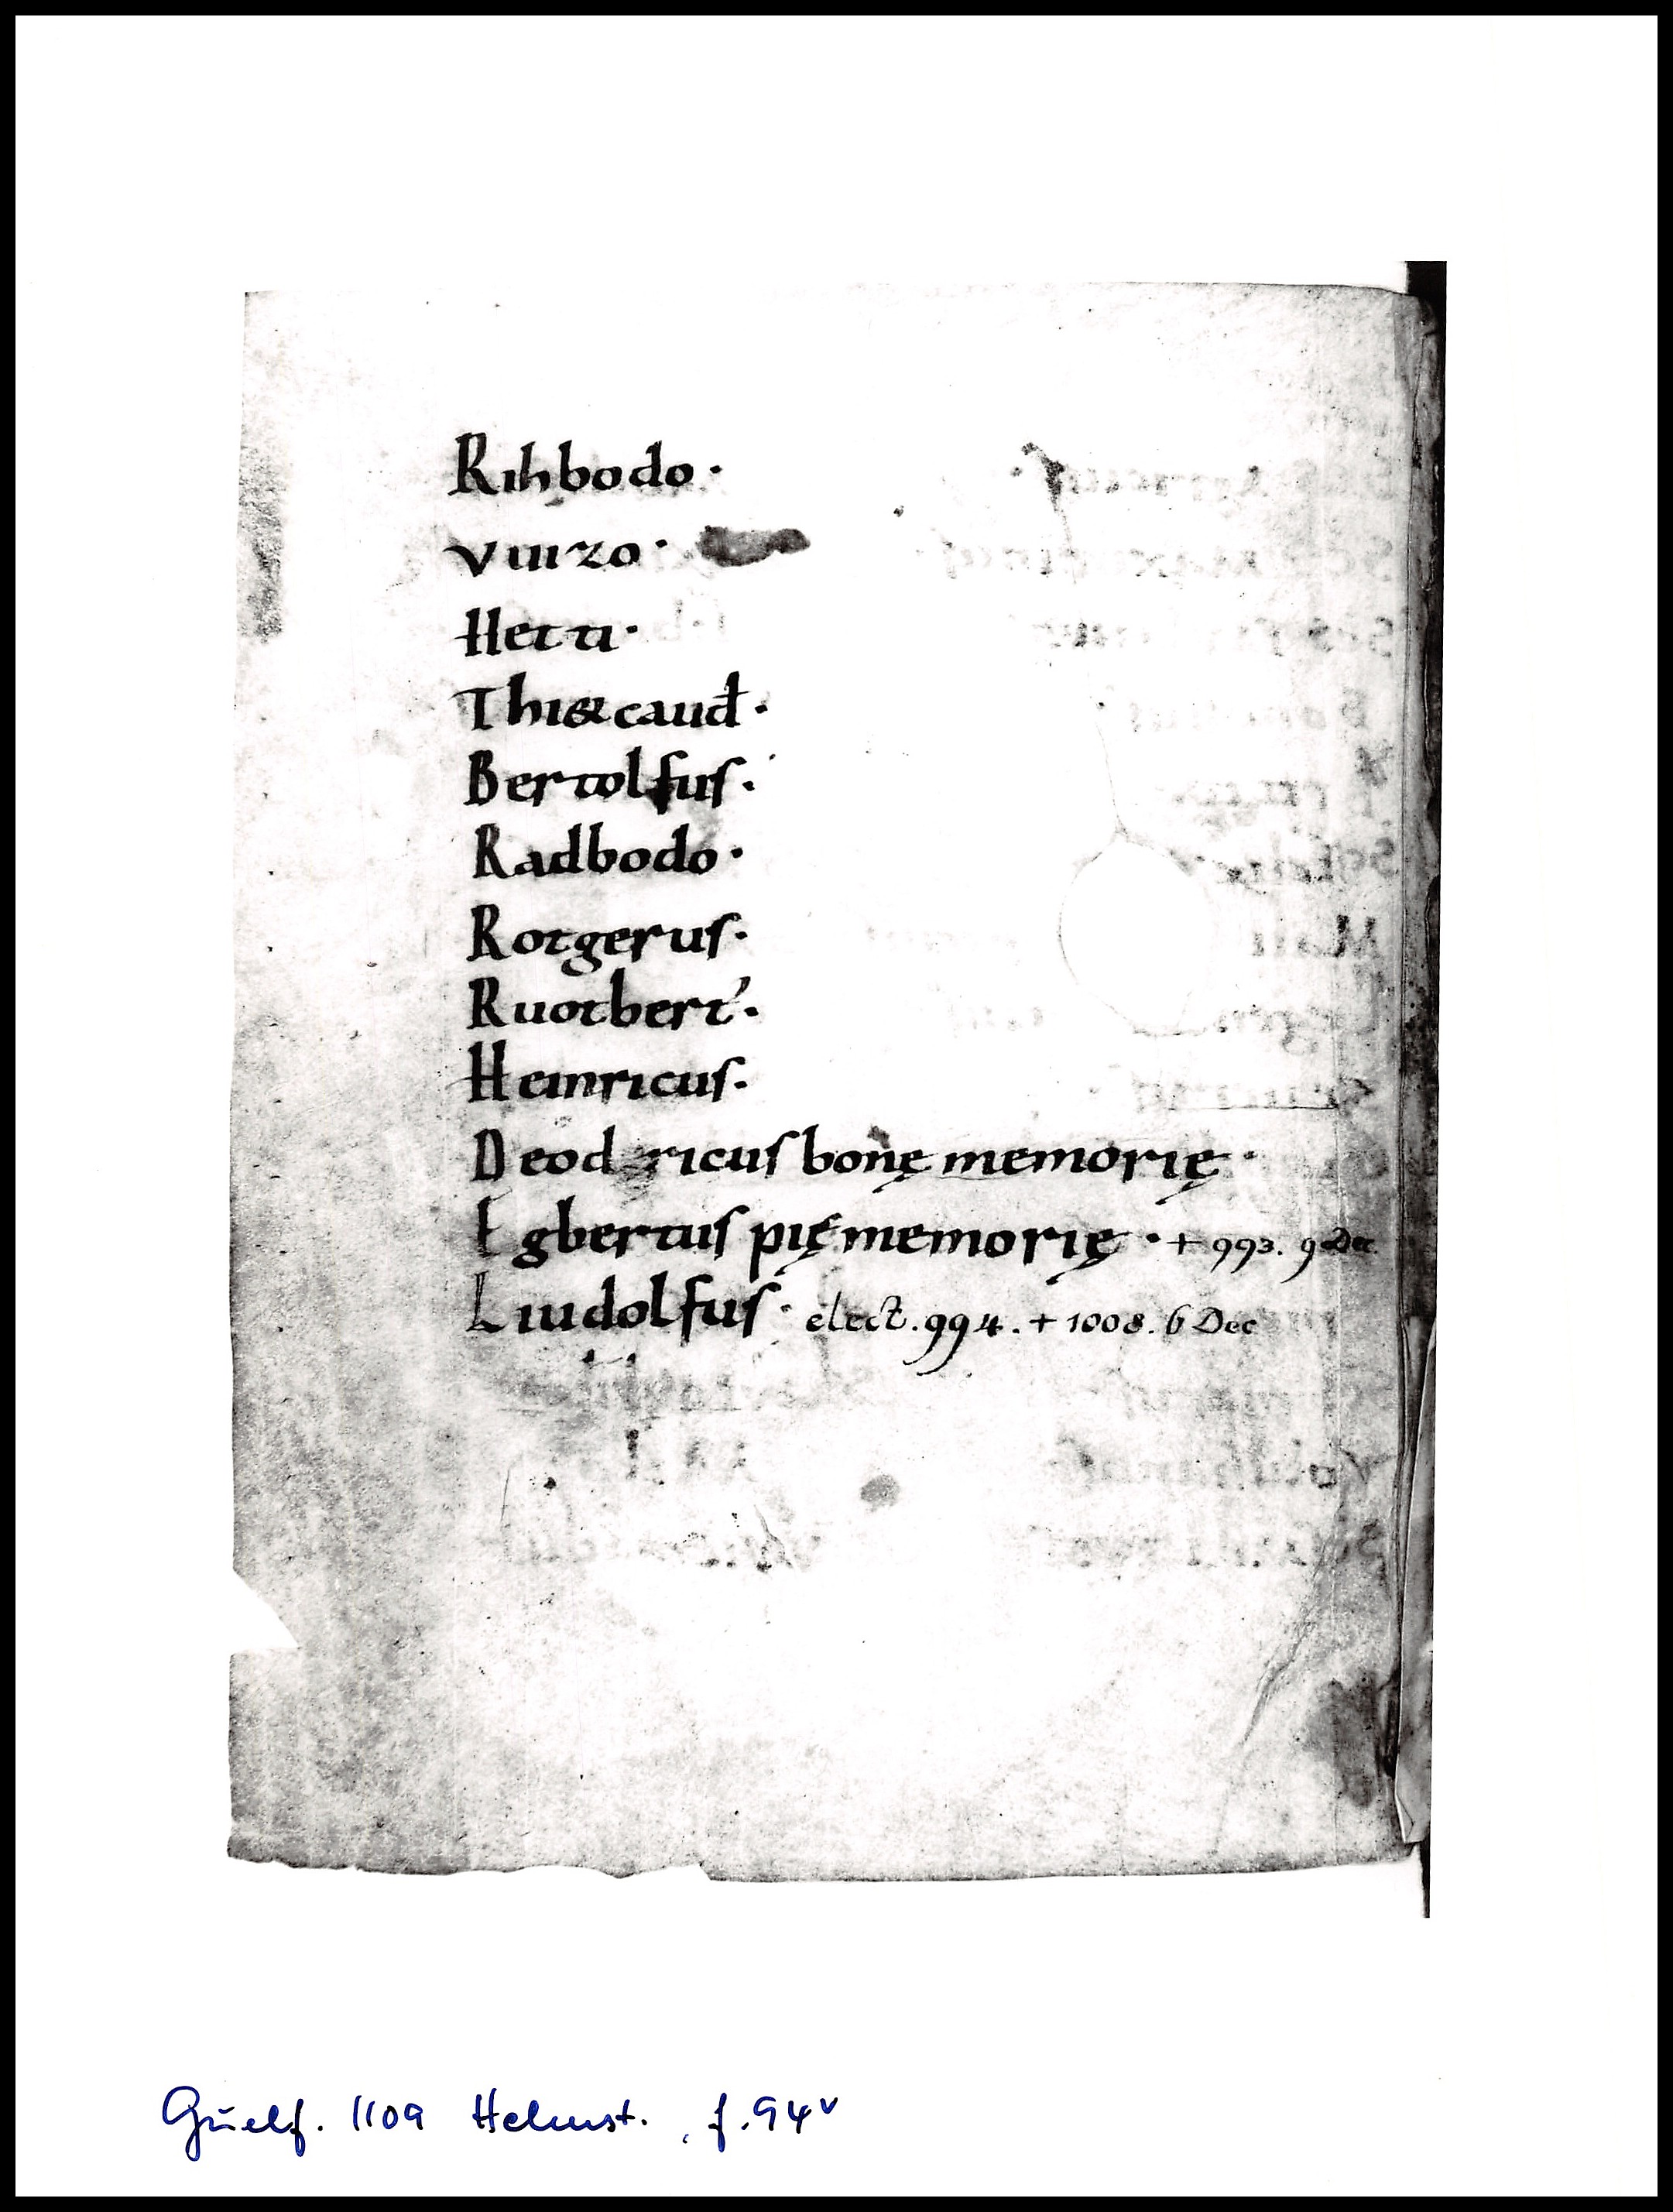 Rihbodo·
Vuizo·
Hetti·
Thi&caud·
Bertolfus·
Radbodo·
Rotgerus·
Ruotbert'·
Heinricus·
Deodricus bonę memorię·
Egbertus pię memorię· + 993. 9 Dec.
Liudolfus· elect. 994. + 1008. 6 Dec
Guelf. 1109 Helmst., f. 94v